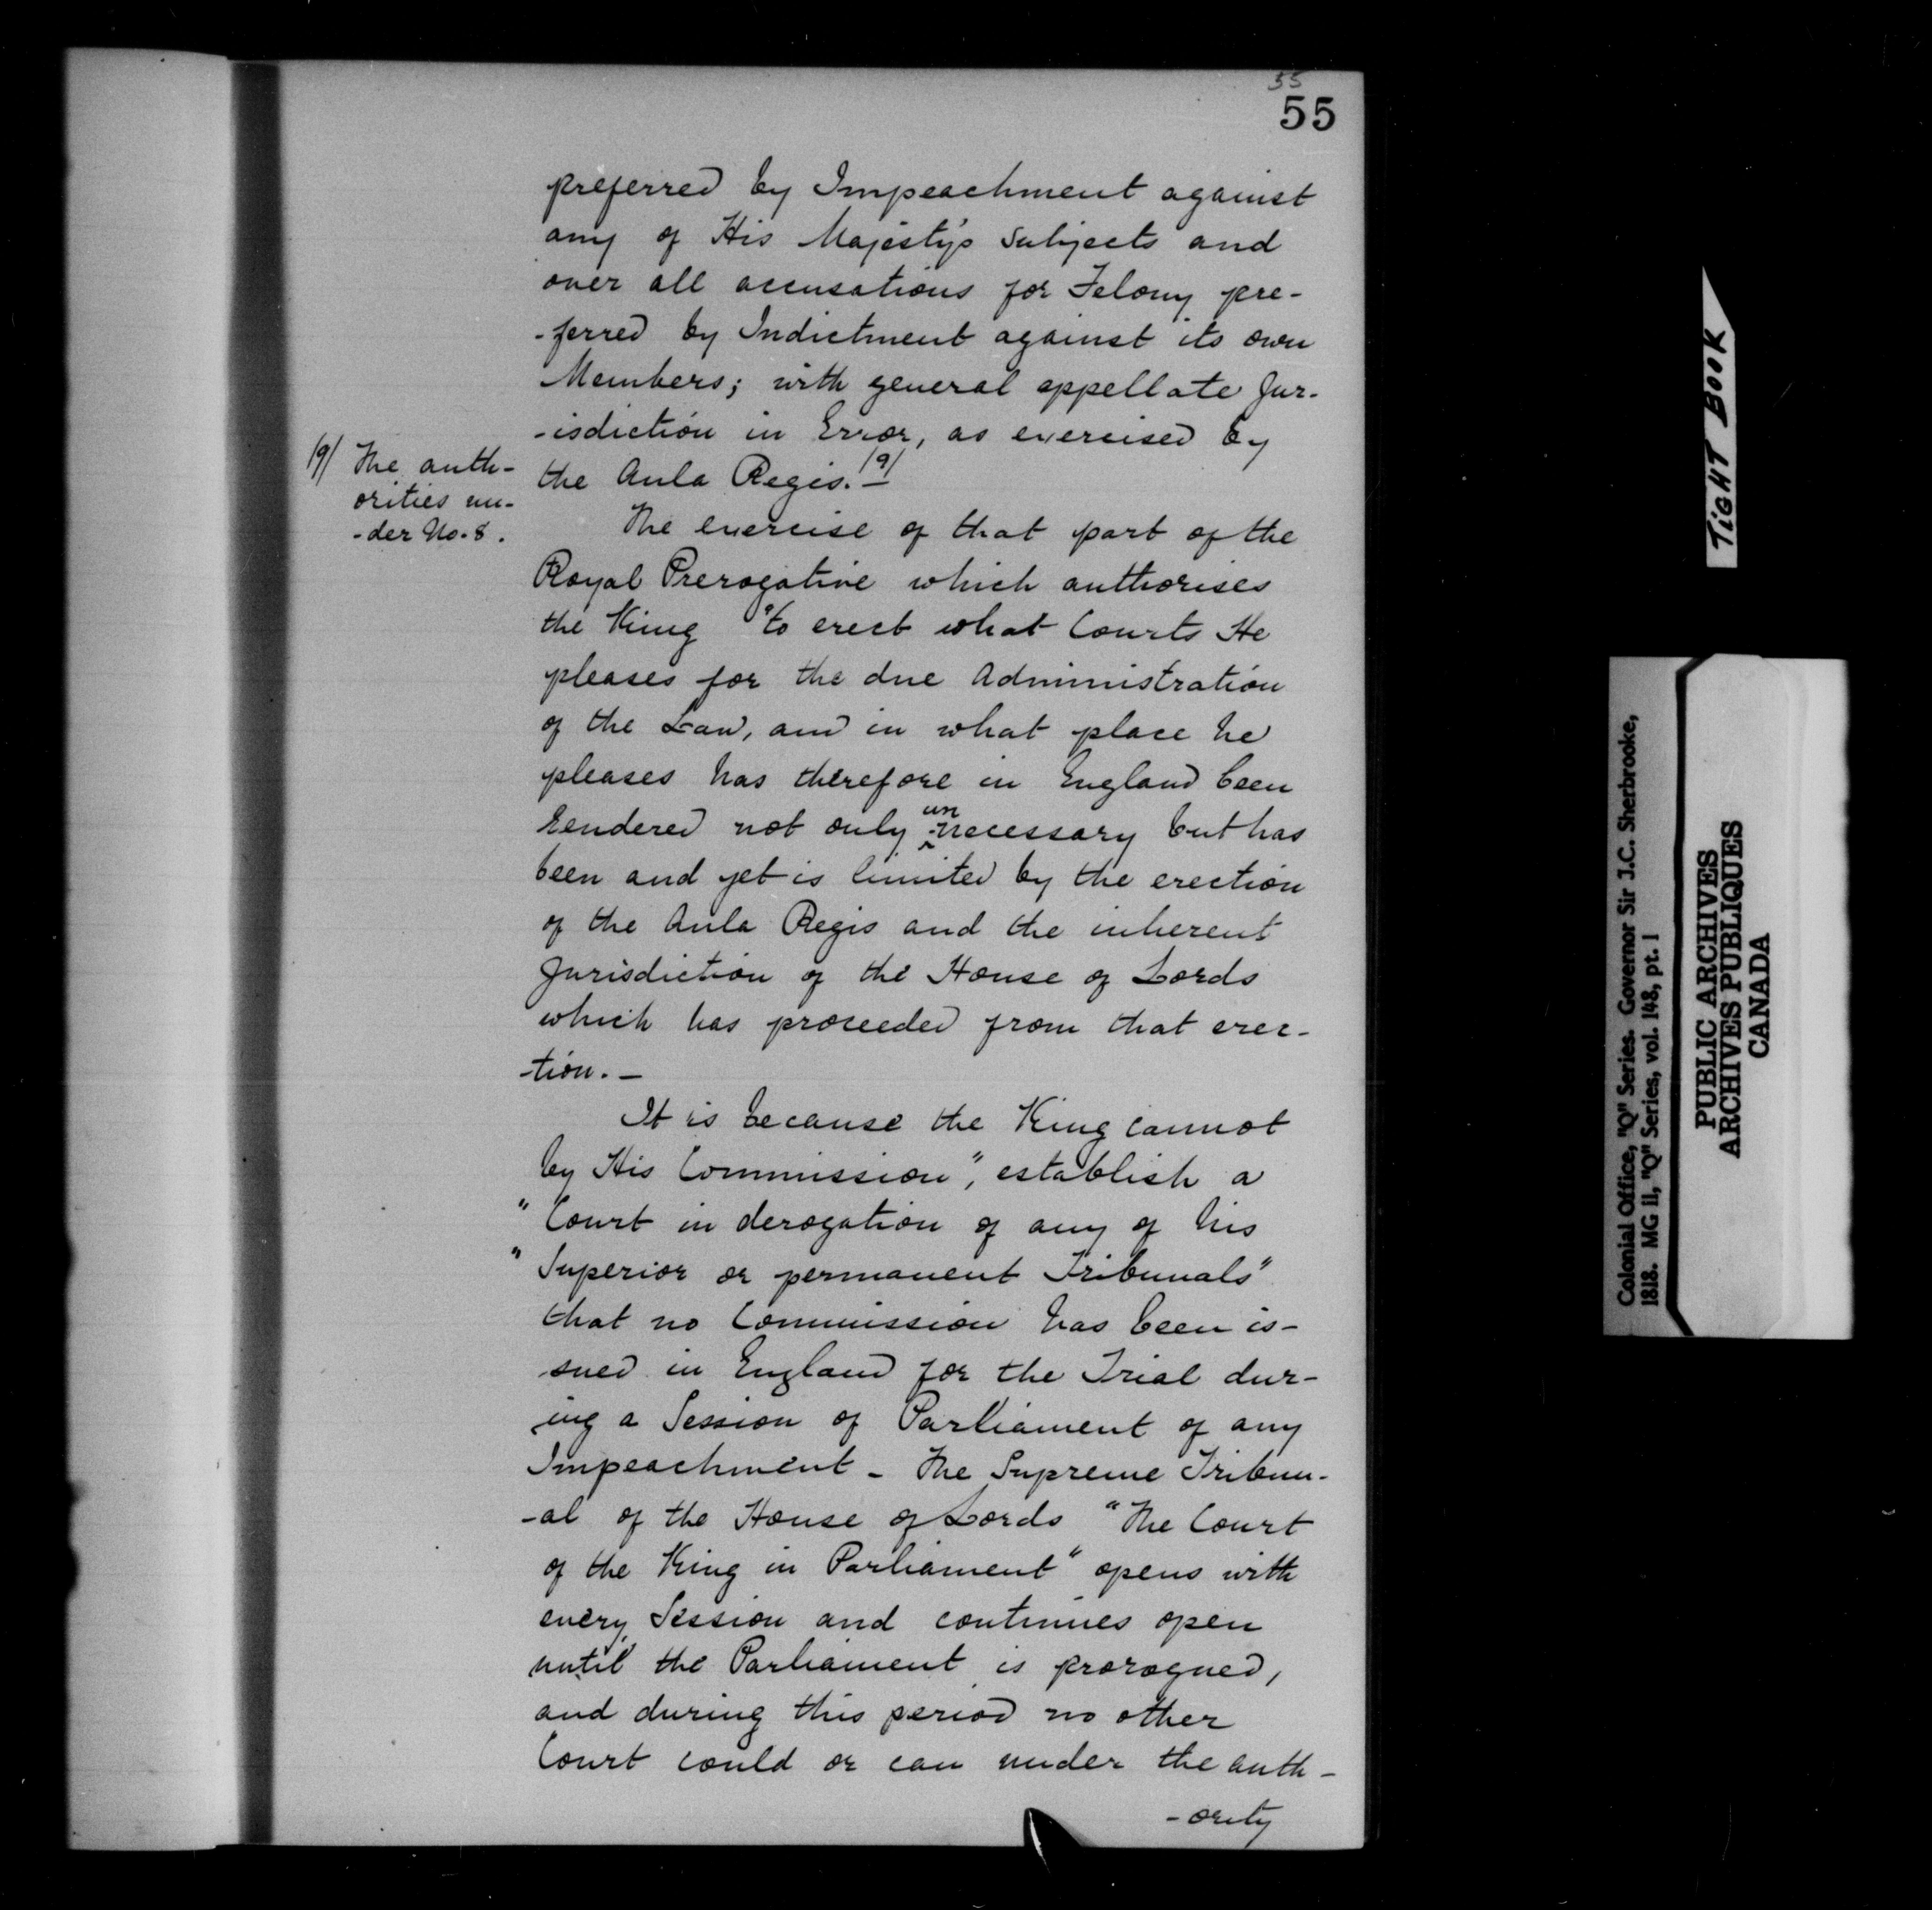 55
55
preferred by Impeachment against
any of His Majesty's Subjects and
over all accusations for Felony pre-
-ferred by Indictment against its own
Members; with general appellate Jur-
-isdiction in Error, as exercised by
the Aula Regis. /9/ —
/9/ The auth-
orities un-
-der No. 8.
The exercise of that part of the
Royal Prerogative which authorises
the King "to erect what Courts He
pleases for the due Administration
of the Law, and in what place he
pleases has therefore in England been
rendered not only unnecessary but has
been and yet is limited by the erection
of the Aula Regis and the inherent
Jurisdiction of the House of Lords
which has proceeded from that erec-
-tion. —
It is because the King cannot
by His Commission", establish a
"Court in derogation of any of his
"Superior or permanent Tribunals"
that no Commission has been is-
sued in England for the Trial dur-
ing a Session of Parliament of any
Impeachment - The Supreme Tribun-
-al of the House of Lords "The Court
of the King in Parliament" opens with
every Session and continues open
until the Parliament is prorogued,
and during this period no other
Court could or can under the auth-
-ority
TIGHT BOOK
Colonial Office, "Q" Series. Governor Sir J.C. Sherbrooke,
1818. MG 11, "Q" Series, vol. 148, pt. 1
PUBLIC ARCHIVES
ARCHIVES PUBLIQUES
CANADA